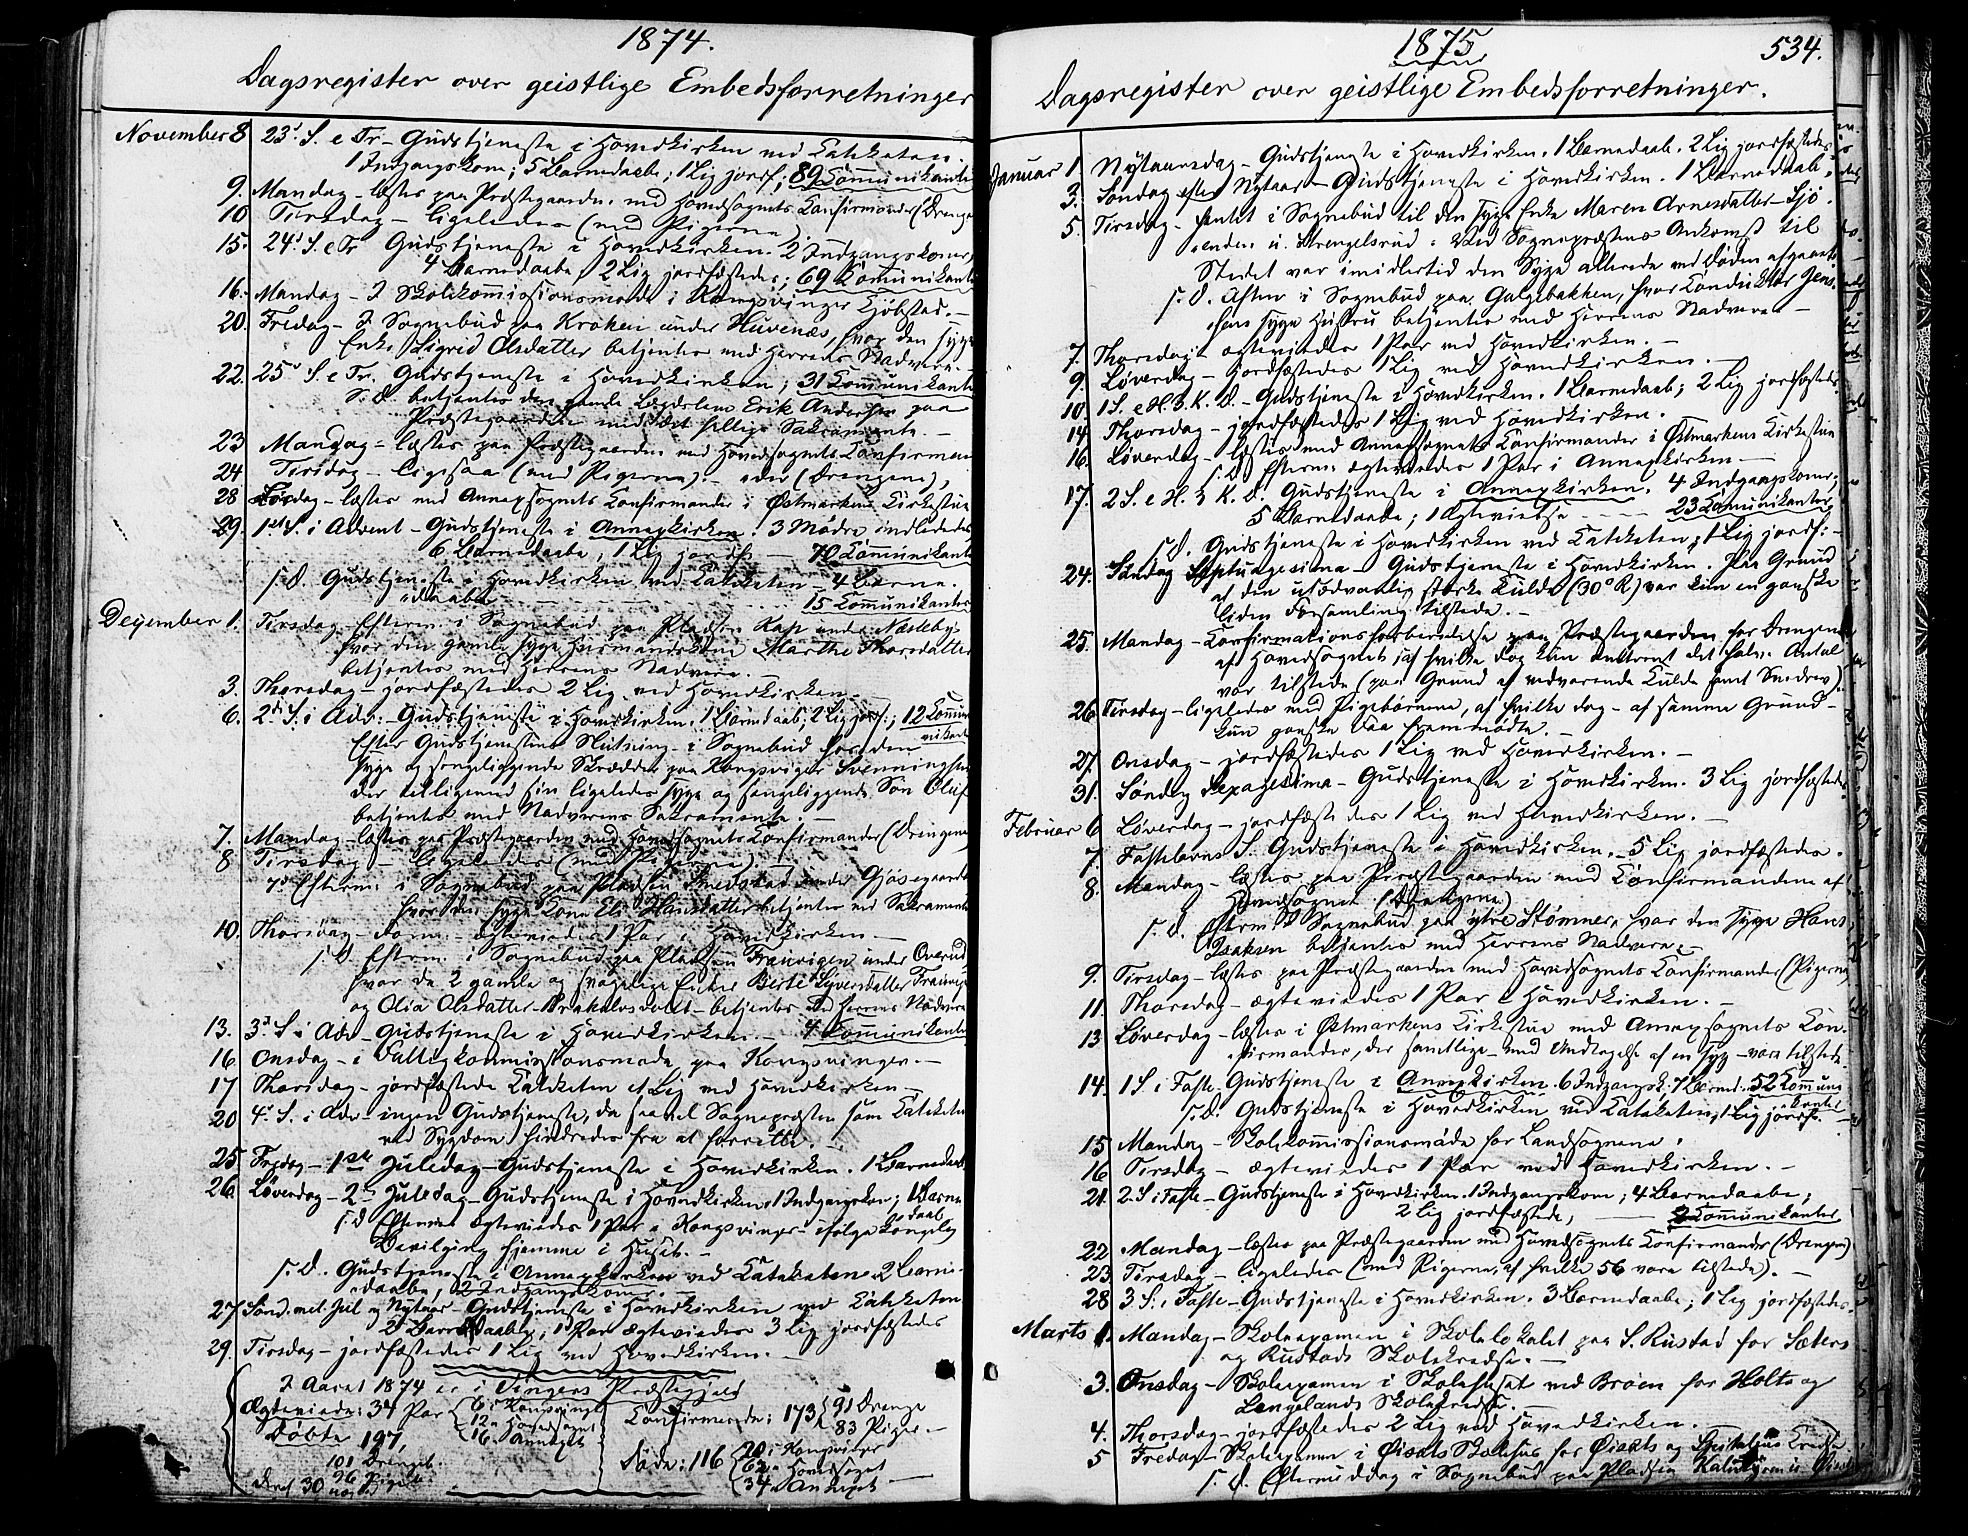 1874.
Dagsregister over geistlige Embedsforretninger
November 8 23' S. e Tr - Gudstjeneste i Hovedkirken ved Catcheten.
1 Indgangskone; 5 Barnedaabe; 1 Lig jordf.; 89 Communikanter
9. Mandag - læstes paa Præstegaarden med Hovedsognets Confirmander (Drengene
10 Tirsdag - ligeledes (med Pigerne)
15. 24' S. e Tr Gudstjeneste i Hovedkirken. 2 Indgangskoner,
4 Barnedaabe, 2 Lig jordfæstedes; 69 Comunikanter
16. Mandag - I Skolekommissionsmøde i Kongsvinger Kjøbstad. -
20. Fredag - I Sognebud paa Kroken under Huvenæs, hvor den syge
Enke Sigrid Olsdatter betjentes med Herrens Nadvere.
22. 25' S. e Tr. Gudstjeneste i Hovedkirken; 31 Communikanter
S. D. betjentes den gamle Lægdslem Erik Andersen paa
Præstegaarden med det hellige Sakramente. -
23 Mandag - læstes paa Præstegaarden med Hovedsognets Confirman
24 Tirsdag - ligesaa (med Pigerne). - (Drengene),
28 Lørdag - læstes med Annexsognets Confirmander i Østmarkens Kirkestue
29. 1ste S. i Advent - Gudstjeneste i Annexkirken. 3 Mødre indlededes
6 Barnedaabe, 1 Lig jordf. - 70 Communikanter
s. D. Gudstjeneste i Hovedkirken ved Catcheten - 4 Barne-
daabe 15 Communikanter
December 1. Tirsdag - Efterm. i Sognebud paa Pladsen Kap under Næsleby
hvor den gamle syge Husmandskone Marthe Thorsdatter
betjentes med Herrens Nadvere. -
3. Thorsdag - jordfæstedes 2 Lig ved Hovedkirken. -
6. 2d S. i Adv. - Gudstjeneste i Hovedkirken. 1 Barnedaab; 2 Lig jordf.; 12 Commu-
nikanter
Efter Gudstjenestens Slutning i Sognebud hos den
syge og sengeliggende Skrædder paa Kongsvinger Svenningsen
der tilligemed sin ligeledes syge og sengeliggende Søn Oluf
betjentes med Nadverens Sakramente. -
7. Mandag - læstes paa Præstegaarden med Hovedsognets Confirmander (Drengene)
8 Tirsdag - ligeledes (med Pigerne)
Efterm. i Sognebud paa Pladsen Smedstad under Gjøsegaarden
hvor den syge Kone Eli Hansdatter betjentes med Sakramentet
10. Thorsdag - Form. - ægteviedes 1 Par i Hovedkirken. -
s. D. Efterm. i Sognebud paa Pladsen Franrigen under Overud
hvor de 2 gamle og svagelige Enker Berte Syversdatter
og Olia Olsdatter betjentes med Herrens Nadvere
13. 3' S. i Adv - Gudstjeneste i Hovedkirken. - 4 Communikanter
16 Onsdag - i Fattigkommissionsmøde paa Kongsvinger. -
17 Thorsdag - jordfæstede Catcheten et Lig ved Hovedkirken -
20 4' S. i Adv - ingen Gudstjeneste, da saavel Sognepræsten som Catcheten
ved Sygdom hindredes fra at forrette.
25 Fredag - 1ste Juledag - Gudstjeneste i Hovedkirken. 1 Barnedaab
26. Løverdag - 2den Juledag - Gudstjeneste i Hovedkirken. 1 Indgangskone; 1 Barne
daab
s. D Efterm. ægteviedes 1 Par i Kongsvinger - ifølge Kongelig
Bevilging hjemme i Huset. -
s. D. Gudstjeneste i Annexkirken ved Catcheten. 2 Barne-
daabe, 2 Indgangskoner. -
27. Sønd. mel. Jul og Nytaar - Gudstjeneste i Hovedkirken ved Catcheten
2 Barnedaabe; 1 Par ægteviedes 3 Lig jordfæstedes
29. Tirsdag - jordfæstedes 1 Lig ved Hovedkirken. -
I Aaret 1874 er i Vingers Præstegjeld
Ægteviede: 34 Par { 6 i Kongsvinger
12 " Hovedsognet
16 " Annexet
Confirmerede: 173 { 91 Drenge
83 Piger. -
Døbte 197,
101 Drengeb.
96 Pigeb.
Døde: 116 { 20 i Kongsvinger
62 " Hovedsognet
34 " Annexet
deraf 30 uægte
1875 534.
Dagsregister over geistlige Embedsforretninger.
Januar 1 Nytaarsdag - Gudstjeneste i Hovedkirken. 1 Barnedaab. 2 Lig jordfæstedes
3. Søndag efter Nytaar - Gudstjeneste i Hovedkirken. 1 Barnedaab.
5. Tirsdag - hentet i Sognebud til den syge Enke Maren Arnesdatter Sjø-
enden u. Strengelsrud: Ved Sognepræstens Ankomst til
Stedet var imidlertid den Syge allerede ved Døden afgaaet
s. D. Aften i Sognebud paa Galgebakken, hvor Conduktør Jens-
sens syge Hustru betjentes med Herrens Nadvere -
7. Thorsdag - ægteviedes 1 Par ved Hovedkirken. -
9. Løverdag - jordfæstedes 1 Lig ved Hovedkirken. -
10 1 S. e H. 3. K. D. - Gudstjeneste i Hovedkirken. 1 Barnedaab; 2 Lig jordfæstedes
14 Thorsdag - jordfæstedes 1 Lig ved Hovedkirken.
16. Løverdag - læstes med Annexsognets Confirmander i Østmarkens Kirkestue
s. D. Efterm. ægteviedes 1 Par i Annexkirken -
17. 2 S. e H. 3 K. D. Gudstjeneste i Annexkirken. 4 Indgangskoner,
5 Barnedaabe; 1 Ægtevielse - - - - 23 Communikanter
s. D. Gudstjeneste i Hovedkirken ved Catcheten; 1 Lig jordf. -
24. Søndag Septuagesima - Gudstjeneste i Hovedkirken. Paa Grund
af den usædvanlig stærke Kulde (30° R) var kun en ganske
liden Forsamling tilstede. -
25. Mandag - Confirmationsforberedelse paa Præstegaarden for Drengene
af Hovedsognet; af hvilke dog kun omtrent det halve Antal
var tilstede (paa Grund af vedvarende Kulde samt Snedrev).
26 Tirsdag - ligeledes med Pigebørnene, af hvilke dog - af samme Grund -
kun ganske faa fremmødte. -
27. Onsdag - jordfæstedes 1 Lig ved Hovedkirken. -
31. Søndag Sexagesima - Gudstjeneste i Hovedkirken. 3 Lig jordfæstedes
Februar 6 Løverdag - jordfæstedes 1 Lig ved Hovedkirken. -
7 Fastelavns S. Gudstjeneste i Hovedkirken. - 5 Lig jordfæstedes.
8. Mandag - læstes paa Præstegaarden med Confirmanderne af
Hovedsognet (Drengene)
s. D. Efterm. i Sognebud paa ytre Stømner, hvor den syge Hans
Isaksen betjentes med Herrens Nadvere. -
9. Tirsdag - læstes paa Præstegaarden med Hovedsognets Confirmander (Pigerne)
11. Thorsdag - ægteviedes 1 Par i Hovedkirken. -
13 Løverdag - læstes i Østmarkens Kirkestue med Annexsognets Con-
firmander, der samtlige - med Undtagelse af en syg - vare tilstede
14. 1 S. i Faste - Gudstjeneste i Annexkirken. 6 Indgangsk.; 7 Barned. 52 Commu-
nikanter
s. D. Gudstjeneste i Hovedkirken ved Catcheten; 1 Lig jordf. -
15 Mandag - Skolekommissionsmøde for Landsognene.
16 Tirsdag - ægteviedes 1 Par ved Hovedkirken. -
21. 2 S i Faste - Gudstjeneste i Hovedkirken. 1 Indgangskone; 4 Barnedaabe;
2 Lig jordfæstede, - 2 Communikanter
22 Mandag - læstes paa Præstegaarden med Hovedsognets Confirmander (Drengene)
23. Tirsdag - ligeledes (med Pigerne, af hvilke 56 vare tilstede). -
28 3. S. i Faste - Gudstjeneste i Hovedkirken. 3 Barnedaabe; 1 Lig jordfæstedes
Marts 1. Mandag - Skoleexamen i Skolelokalet paa S. Rustad for Sæters
og Rustads Skolekredse. -
3. Onsdag - Skoleexamen i Skolehuset ved Broen for Holts og
Lengelands Skolekredse. -
4. Thorsdag - jordfæstedes 2 Lig ved Hovedkirken. -
5 Fredag - Skoleexamen i Øiaats Skolehus for Øiaats og Spitalens Kredse
s. D. Eftermiddag i Sognebud paa Pladsen